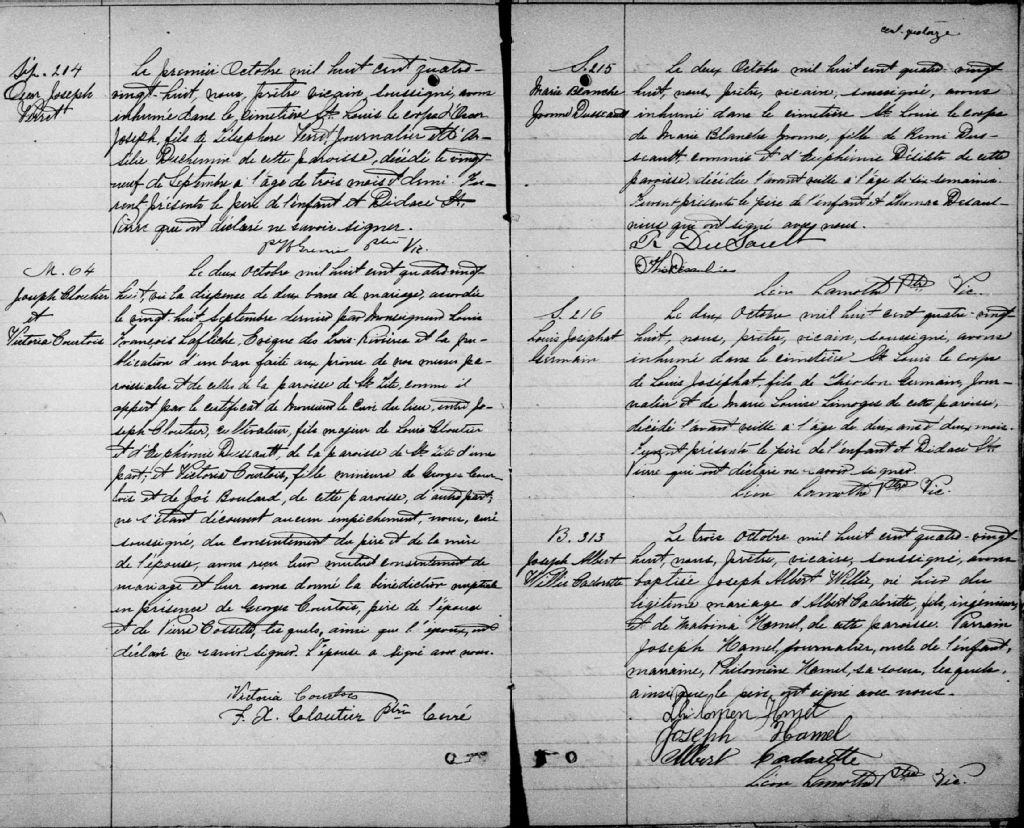 Sép. 214
Oscar Joseph
Verret
Le premier Octobre mil huit cent quatre-
vingt-huit, nous, prêtre vicaire soussigné, avons
inhumé dans le cimetière St. Louis le corps d'Oscar
Joseph, fils de Télesphore Verret, Journalier et d'Ar-
sélie Duchemin de cette paroisse, décédé le vingt
neuf de Septembre à l'âge de trois mois et demi. Fu-
rent présents le père de l'enfant et Didace St.
Pierre qui ont déclaré ne savoir signer.
ptre Vic.
M. 64
Joseph Cloutier
et
Victoria Courtois
Le deux Octobre mil huit cent quatre vingt
huit, vu la dispense de deux bans de mariage, accordée
le vingt-huit Septembre dernier par Monseigneur Louis
François Laflèche, Evêque des Trois Rivières et la pu-
blication d'un ban faite aux prônes de nos messes pa-
roissiales et de celles de la paroisse de St. Tite, comme il
appert par le certificat de Monsieur le Curé du lieu, entre Jo-
seph Cloutier, Cultivateur, fils majeur de Louis Cloutier
et d'Euphémie Dessault, de la paroisse de St. Tite d'une
part; et Victoria Courtois, fille mineure de Georges Cour-
tois et de Zoé Boulard, de cette paroisse, d'autre part;
ne s'étant découvert aucun empêchement, nous, curé
soussigné, du consentement du père et de la mère
de l'épouse, avons reçu leur mutuel consentement de
mariage et leur avons donné la bénédiction nuptiale
en présence de Georges Courtois, père de l'épouse
et de Pierre Cossette, les quels, ainsi que l'époux, ont
déclaré ne savoir signer. L'épouse a signé avec nous.
Victoria Courtois
F. X. Cloutier ptre Curé
S. 215
Marie Blanche
Yvonne Dussault
Le deux Octobre mil huit cent quatre-vingt
huit, nous, prêtre, vicaire, soussigné, avons
inhumé dans le cimetière St. Louis le corps
de Marie Blanche Yvonne, fille de Rémi Dus-
seault commis et d'Euphémie Désilets de cette
paroisse, décédée l'avant veille à l'âge de six semaines.
Furent présents le père de l'enfant et Thomas Desaul-
niers qui ont signé avec nous.
R DuSault
Léon Lamothe Ptre Vic.
S. 216
Louis Josaphat
Germain
Le deux Octobre mil huit cent quatre-vingt
huit, nous, prêtre, vicaire, soussigné, avons
inhumé dans le cimetière St. Louis le corps
de Louis Josaphat fils de Théodore Germain, Jour-
nalier et de Marie Louise Limoges de cette paroisse,
décédé l'avant veille à l'âge de deux ans et deux mois.
Furent présents le père de l'enfant et Didace St.
Pierre qui ont déclaré ne savoir signer.
Léon Lamothe Ptre Vic.
B. 313
Joseph Albert
Willie Cadorette
Le trois Octobre mil huit cent quatre-vingt
huit, nous, prêtre, vicaire, soussigné, avons
baptisé Joseph Albert Willie, né hier du
légitime mariage d'Albert Cadorette, fils, ingénieur
et de Malvina Hamel, de cette paroisse. Parrain
Joseph Hamel, journalier, oncle de l'enfant,
marraine, Philomène Hamel, sa soeur, les quels,
ainsi que le père, ont signé avec nous.
Philomen Hamel
Joseph Hamel
Albert Cadorette
Léon Lamothe Ptre Vic.